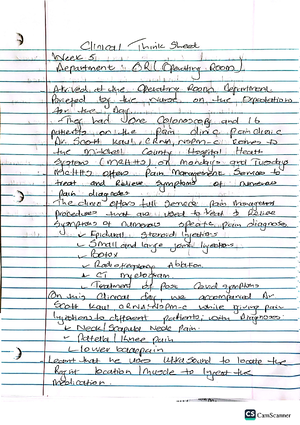 Clinical Think Sheet
Week 5:
Department : OR (Operating Room).
Arrived at the Operating Room Department
by the nurse on the Expectations
for the Day.
They had One Colonoscopy and 16
patients on the Pain clinic. Pain clinic
Dr. Scott Kaul, CRNA, NSPM-C comes to
the Mitchell County Hospital Health
Systems (MCHHS) on mondays and Tuesday
MCHHS offers Pain Management Services to
treat and Relieve Symptoms of numerous
pain diagnoses
The clinic offers full Service Pain management
procedures that are used to treat & Relieve
Symptoms of numerous Pain diagnoses
✓ Epidural Steroid Injections
✓ Small and large joint Injections.
✓ Botox
✓ Radiofrequency Ablation
✓ CT Myelogram
✓ Treatment of Post Covid symptoms
On this Clinical day, we accompanied Dr
Scott Kaul CRNA NSPM-C while giving pain
Injections to different patients, with Diagnoses.
✓ Neck/Scapular Neck Pain.
✓ Patella/knee pain
✓ lower back pain
Learnt that he uses Ultra Sound to locate the
Right location/Muscle to Inject the
Medication.
CS CamScanner